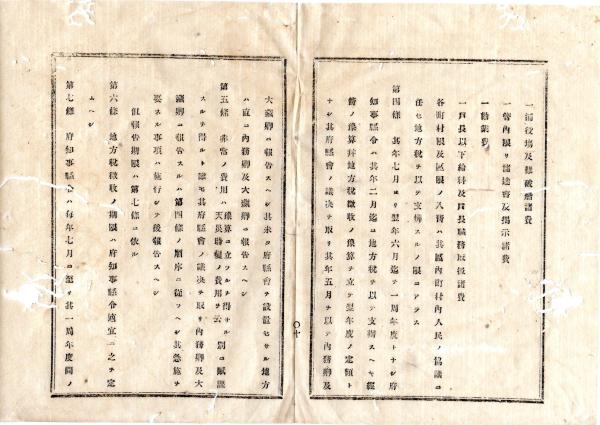 一浦役場及難破船諸費
一管內限リ諸達書及揭示諸費
一勸業費
一戶長以下給料及戶長職務取扱諸費
各町村限及區限ノ入費ハ其區內町村內人民ノ協議ニ
任セ地方稅ヲ以テ支辨スルノ限ニアラス
第四條 其年七月ヨリ翌年六月迄ヲ一周年度トナシ府
知事縣令ハ其年二月迄ニ地方稅ヲ以テ支辨スヘキ經
費ノ豫算幷地方稅徵收ノ豫算ヲ立テ翌年度ノ定額ト
ナシ其府縣會ノ議決ヲ取リ其年五月ヲ以テ內務卿及
〇十
大藏卿ニ報告スヘシ其未タ府縣會ヲ設置セサル地方
ハ直ニ內務卿及大藏卿ニ報告スヘシ
第五條 非常ノ費用ハ豫算ニ立ツルヲ得サル 天災時變ノ費用ヲ云 別ニ賦課
スルヲ得ルト雖モ其府縣會ノ議決ヲ取リ內務卿及大
藏卿ニ報告スルハ第四條ノ順序ニ從フヘシ其急施ヲ
要スル事項ハ施行シテ後報告スヘシ
但報告期限ハ第七條ニ依ル
第六條 地方稅徵收ノ期限ハ府知事縣令適宜ニ之ヲ定
ムヘシ
第七條 府知事縣令ハ每年七月ニ至リ其一周年度間ノ